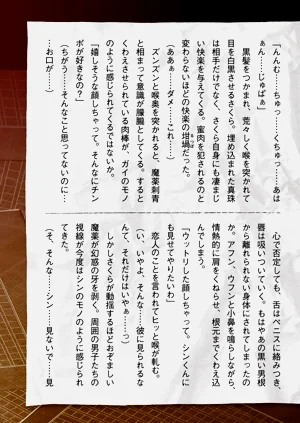 「んんむ……ちゅっ……くちゅっ……あは
ぁん……じゅぱぁ」
黒髪をつかまれ、荒々しく喉を突かれて
目を白黒させるさくら。埋め込まれた真珠
は相手だけでなく、さくら自身にも凄まじ
い快楽を与えてくる。蜜肉を犯されるのと
変わらないほどの快楽の坩堝だった。
（ああぁ……ダメ……これ……）
ズンズンと喉奥を突かれると、魔薬刺青
と相まって意識が朦朧としてくる。すると
くわえさせられている肉棒が、ガイのモノ
のように感じられてくるではないか。
「嬉しそうな顔しちゃって。そんなにチン
ポが好きなの？」
（ちがう……そんなこと思ってないのに…
…お口が……）
心で否定しても、舌はペニスに絡みつき、
唇は吸いついていく。もはやあの黒い男根
から離れられない身体にされてしまったの
か。アフン、ウフンと小鼻を鳴らしながら、
情熱的に肩をくねらせ、根元までくわえ込
んでしまう。
「ウットリした顔しちゃって。シンくんに
も見せてやりたいわ」
恋人のことを言われてヒッと喉が軋む。
（い、いやよ、そんな……彼に見られるな
んて、それだけはいやぁ……っ）
しかしさくらが動揺するほどおぞましい
魔薬が幻惑の牙を剥く。周囲の男子たちの
視線が今度はシンのモノのように感じられ
てきた。
（そ、そんな……シン……見ないで……見